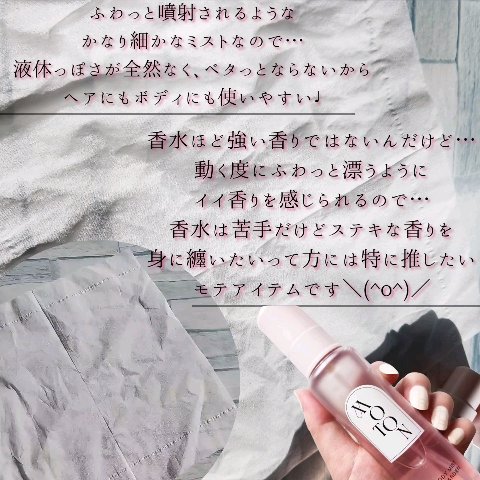 ふわっと噴射されるような
かなり細かなミストなので…
液体っぽさが全然なく、ベタっとならないから
ヘアにもボディにも使いやすい♩
香水ほど強い香りではないんだけど…
動く度にふわっと漂うように
イイ香りを感じられるので…
香水は苦手だけどステキな香りを
身に纏いたいって方には特に推したい
モテアイテムです＼(^o^)／